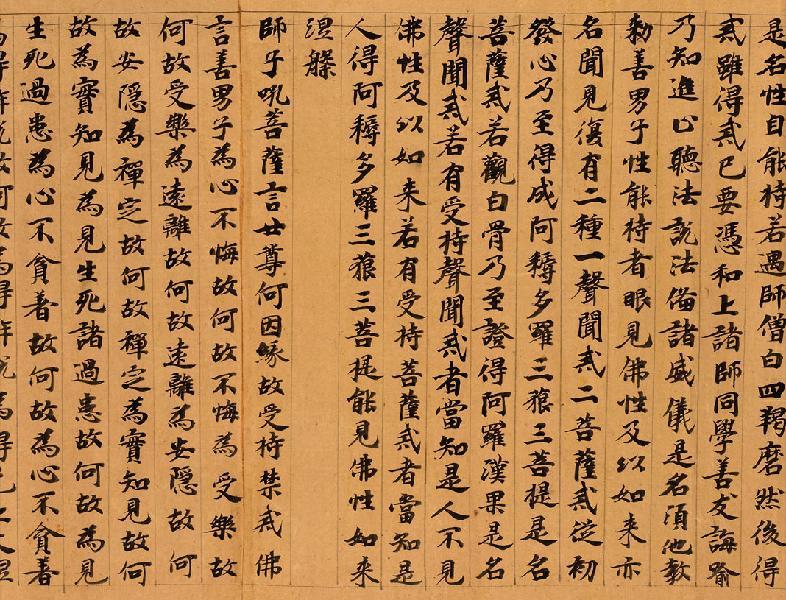 是名性自能持若遇師僧白四羯磨然後得
戒雖得戒已要憑和上諸師同學善友誨喻
乃知進止聽法說法俻諸威儀是名須他教
勑善男子性能持者眼見佛性及以如来亦
名聞見復有二種一聲聞戒二菩薩戒從初
發心乃至得成阿耨多羅三藐三菩提是名
菩薩戒若觀白骨乃至證得阿羅漢果是名
聲聞戒若有受持聲聞戒者當知是人不見
佛性及以如来若有受持菩薩戒者當知是
人得阿耨多羅三藐三菩提能見佛性如来
涅槃
師子吼菩薩言世尊何因緣故受持禁戒佛
言善男子為心不悔故何故不悔為受樂故
何故受樂為遠離故何故遠離為安隱故何
故安隱為禪定故何故禪定為實知見故何
故為實知見為見生死諸過患故何故為見
生死過患為心不貪著故何故為心不貪著